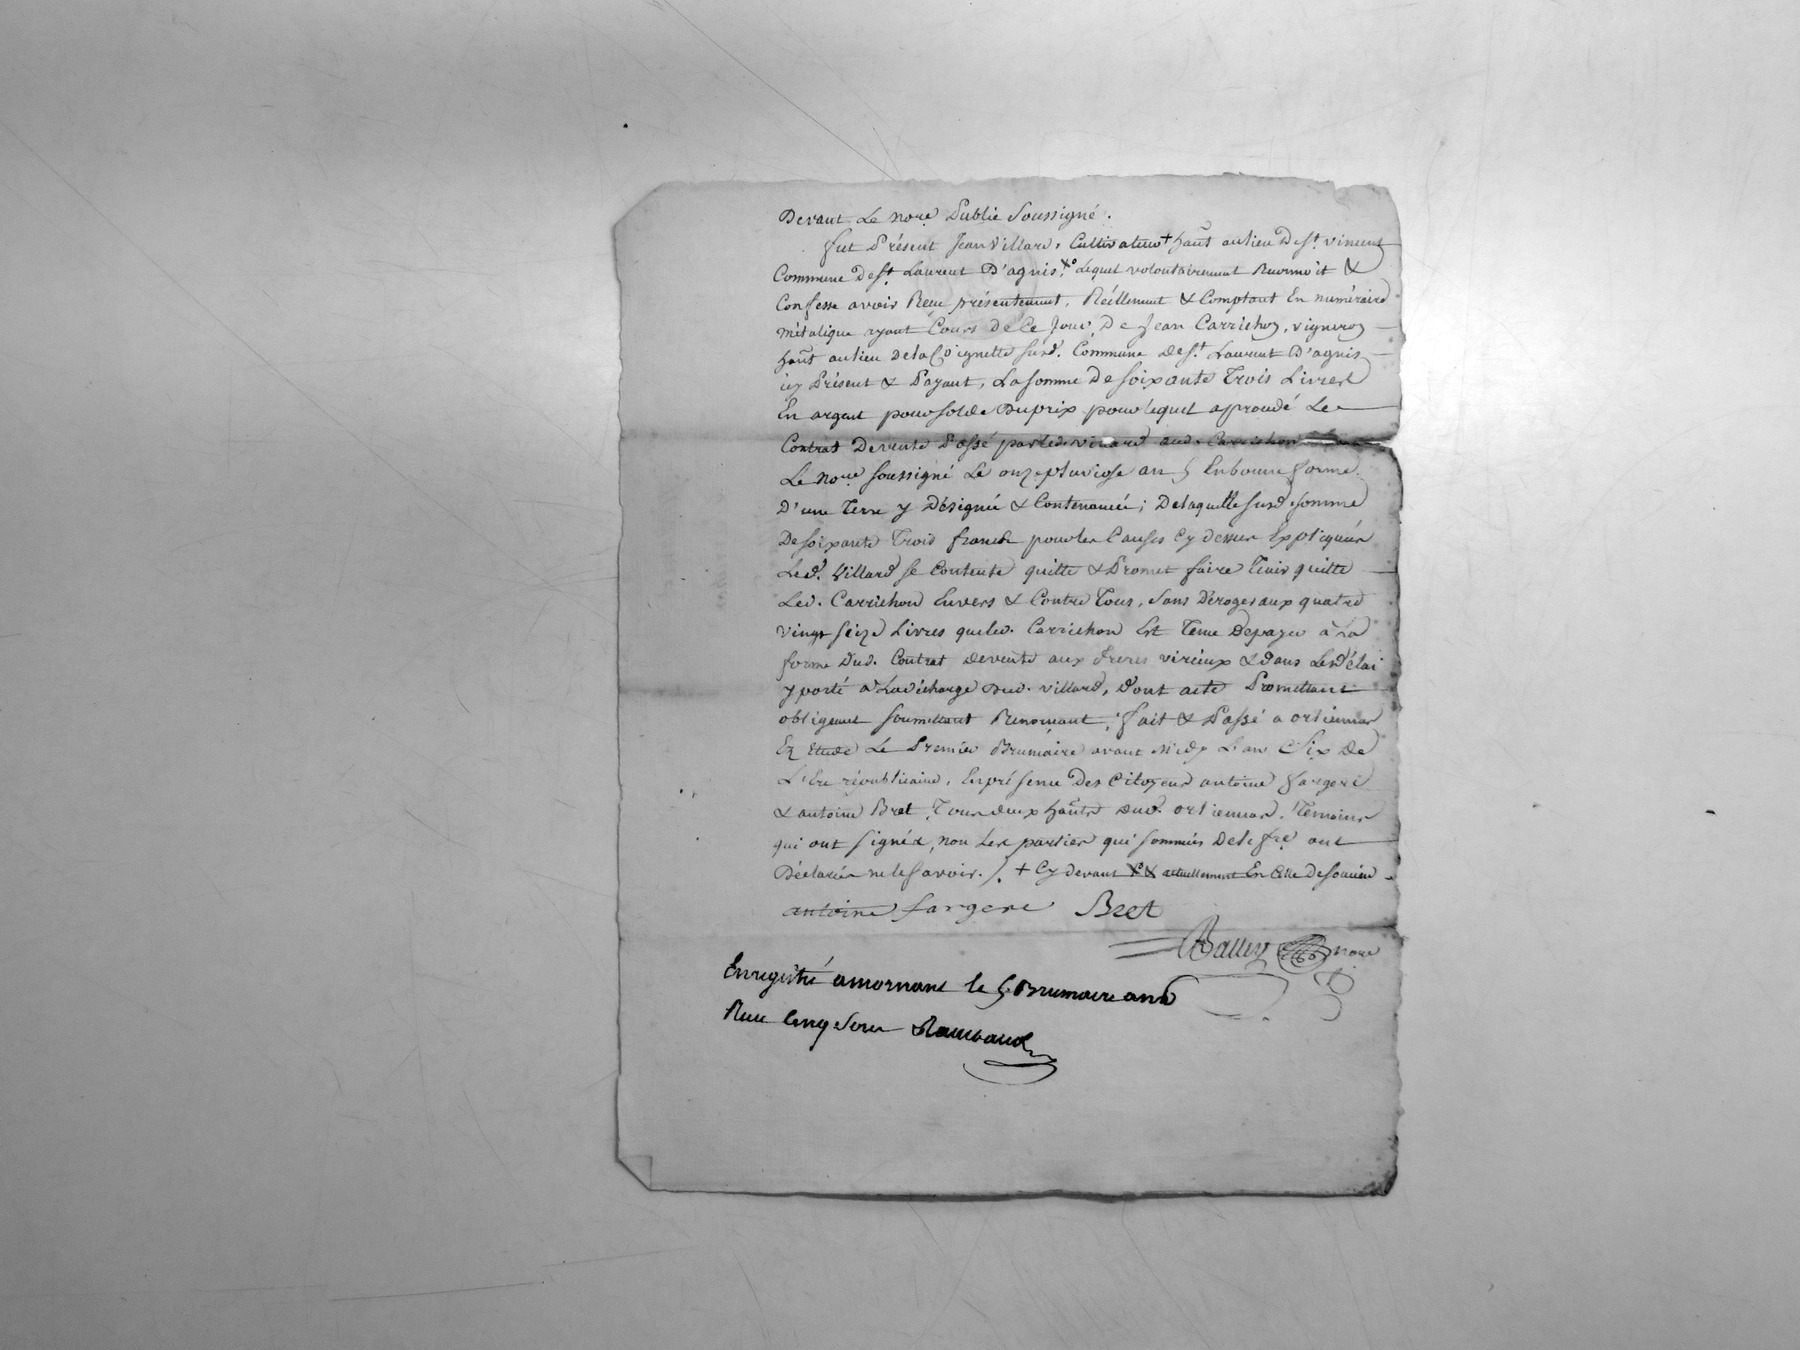 Devant Le nore Public Soussigné.
fut Présent Jean Villard, Cultivateur + hant au lieu De st. vincent
Commune De st. Laurent D'agnis, Lequel volontairement Reconnoit &
Confesse avoir Reçu présentement, Réellement & Comptant En numéraire
métalique ayant Cours de Ce Jour, De Jean Carrichon, vigneron
hant au lieu de la susd. Commune de st. Laurent D'agnis
icy Présent & Payant, La somme De soixante Trois Livres
En argent pour solde Du prix pour lequel a procédé Le
Contrat De vente Passé par led. villard aud. Carrichon
Le nore soussigné Le onze pluviose an 5 En bonne forme
D'une Terre y Désignée & Contenancée; De laquelle susd. somme
De soixante Trois francs pour les Causes Cy dessus Expliquées
Led. Villard se Contente quitte & Promet faire Tenir quitte
Led. Carrichon Envers & Contre Tous, sans Déroger aux quatre
vingt seize Livres que led. Carrichon Est Tenu De payer à La
forme Dud. Contrat de vente aux freres virieux & dans Le délai
y porté à La décharge Dud. Villard, Dont acte Promettant
obligeant soumettant Renonçant, fait & Passé a orlienas
En Etude Le Premier Brumaire avant Midy L'an Six De
L'Ere républicaine, En présence Des Citoyens antoine fargere
& antoine Bret, Tous deux hants Dud. orlienas, Témoins
qui ont signés, non Les parties qui sommés De le fre ont
Déclarés ne le savoir. /. + Cy devant & actuellement En Celle De soucieu
antoine fargere Bret
nore
Enregistré a mornant le 5 Brumaire an 6
Reçu Cinq sous Rambaud